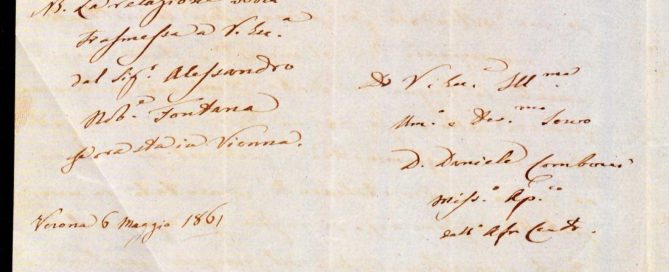 NB. La relazione sarà
trasmessa a V. Ecc.ª
dal Sig.r Alessandro
Nob.e Fontana
che ora sta in Vienna.
Di V. Ecc.ª Ill.ma
Um.o e Dev.mo Servo
D. Daniele Comboni
Miss.o Ap.co
dell'Afr. Centr.
Verona 6 Maggio 1861